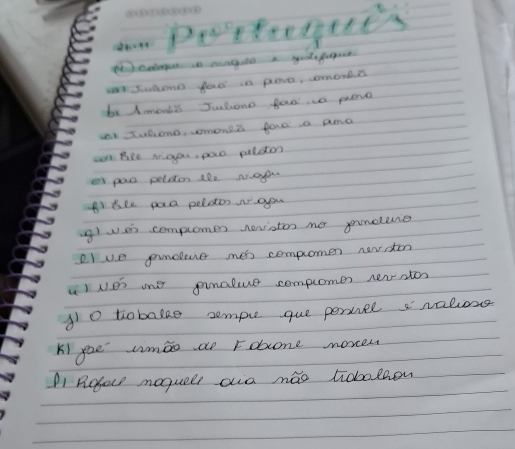 Português
01) coloque a vírgula e justifique
a) Juliana fará a prova, amanhã
b) Amanhã Juliana fará a prova
c) Juliana, amanhã fará a prova
d) Ele viajou, para pelotas
e) para pelotas ele viajou
f) Ele para pelotas viajou
g) Nós compramos revistas no jornaleiro
No jornaleiro nós compramos revistas
Nós no jornaleiro compramos revistas
j) O trabalho sempre que possível é valioso
K) José irmão de Fabiane nasceu
l) Rafael naquele dia não trabalhou